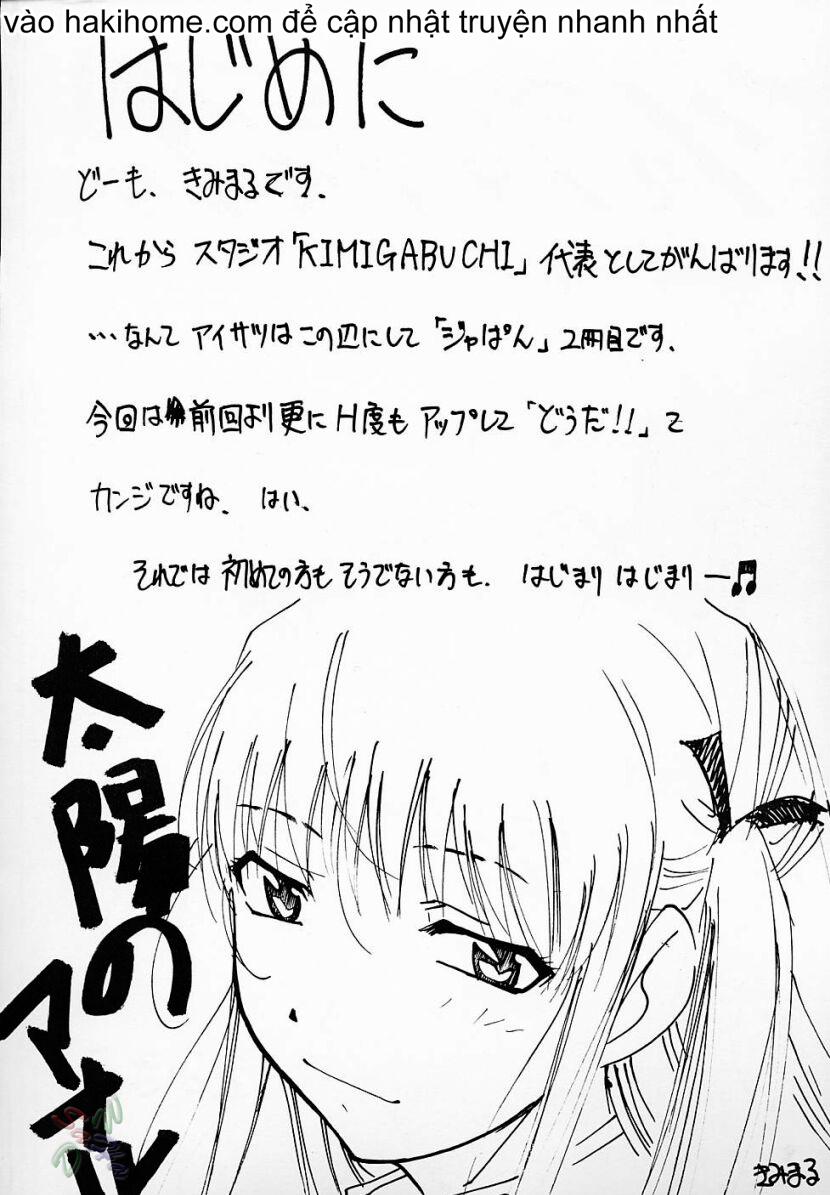 vào hakihome.com để cập nhật truyện nhanh nhất
はじめに
どーも、きみまるです、
これから スタジオ「KIMIGABUCHI」代表としてがんばります!!
…なんて アイサツはこの辺にして「ジャぱん」2冊目です、
今回は前回より更に H度も アップして「どうだ!!」て
カンジですね、はい、
それでは 初めての方も そうでない方も、はじまり はじまりー♫
太陽の
マオル
きみまる